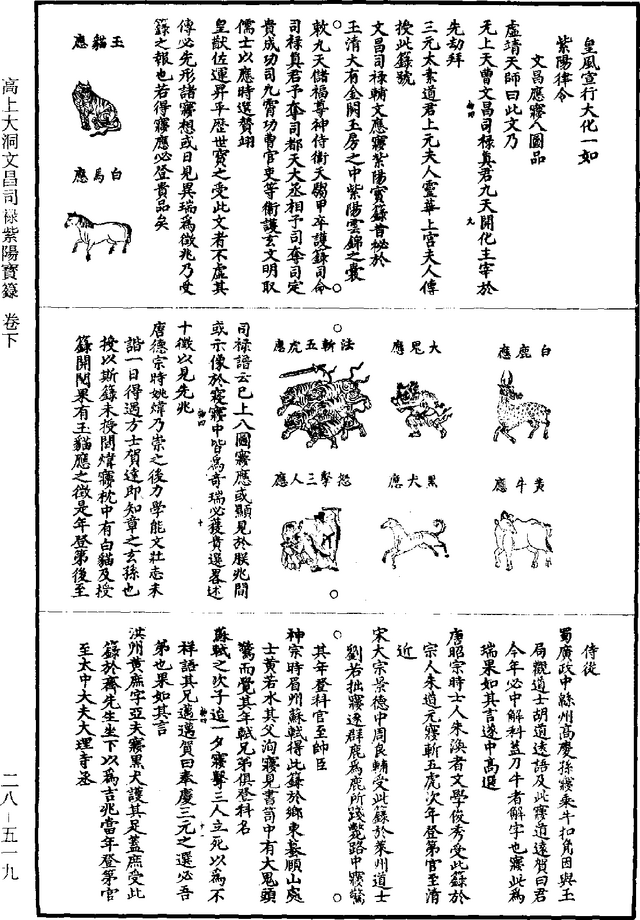 皇風宣行大化一如
紫陽律令
文昌應夢八圖品
虛靖天師曰此文乃
无上天曹文昌司祿真君九天開化主宰於
先劫拜
三元太素道君上元夫人靈華上宮夫人傳
授此籙號
文昌司祿輔文應夢紫陽寶籙昔秘於
玉清大有金闕玉房之中紫陽雲錦之囊
敕九天儲福尊神侍衛天騶甲卒護籙司命
司祿真君予奪司都天大丞相予司奪司定
貴成功司九霄功曹官吏等衛護玄文明取
儒士以應時選贊翊
皇猷佐運昇平歷世寶之受此文者不虛其
傳必先形諸夢想或日見異瑞為徵兆乃受
籙之報也若得夢應必登貴品矣
玉貓應
白馬應
白鹿應
黃牛應
大鬼應
黑犬應
法斬五虎應
怒擊三人應
司祿譜云已上八圖夢應或顯見於朕兆間
或示像於寤寐中皆為奇瑞必獲貴選畧述
十徵以見先兆
唐德宗時姚煒乃崇之後力學能文壯志未
諧一日得遇方士賀達即知章之玄孫也
授以斯籙未授間煒夢枕中有白貓及授
籙開閱果有玉貓應之徵是年登第後至
侍從
蜀廣政中綿州高慶孫夢乘牛扣角因與玉
局觀道士胡道遠語及此夢道遠賀曰君
今年必中解科蓋刀牛者解字也夢此為
瑞果如其言遂中高選
唐昭宗時士人朱渙者文學俊秀受此籙於
宗人朱道元夢斬五虎次年登第官至清
近
宋太宗景德中周良輔受此籙於萊州道士
劉若拙夢逸群鹿為鹿所踐斃路中夢驚
其年登科官至帥臣
神宗時眉州蘇軾得此籙於鄉東蟇頤山處
士黃若水其父洵夢見書笥中有大鬼頭
驚而覺其年軾兄弟俱登科名
蘇軾之次子迨一夕夢擊三人立死以為不
祥語其兄邁邁賀曰奉慶三元之選必吾
弟也果如其言
洪州黃庶字亞夫夢黑犬護其足蓋庶受此
籙於齊先生坐下以為吉兆當年登第官
至太中大夫大理寺丞
高上大洞文昌司祿紫陽寶籙 卷下
二八－五一九